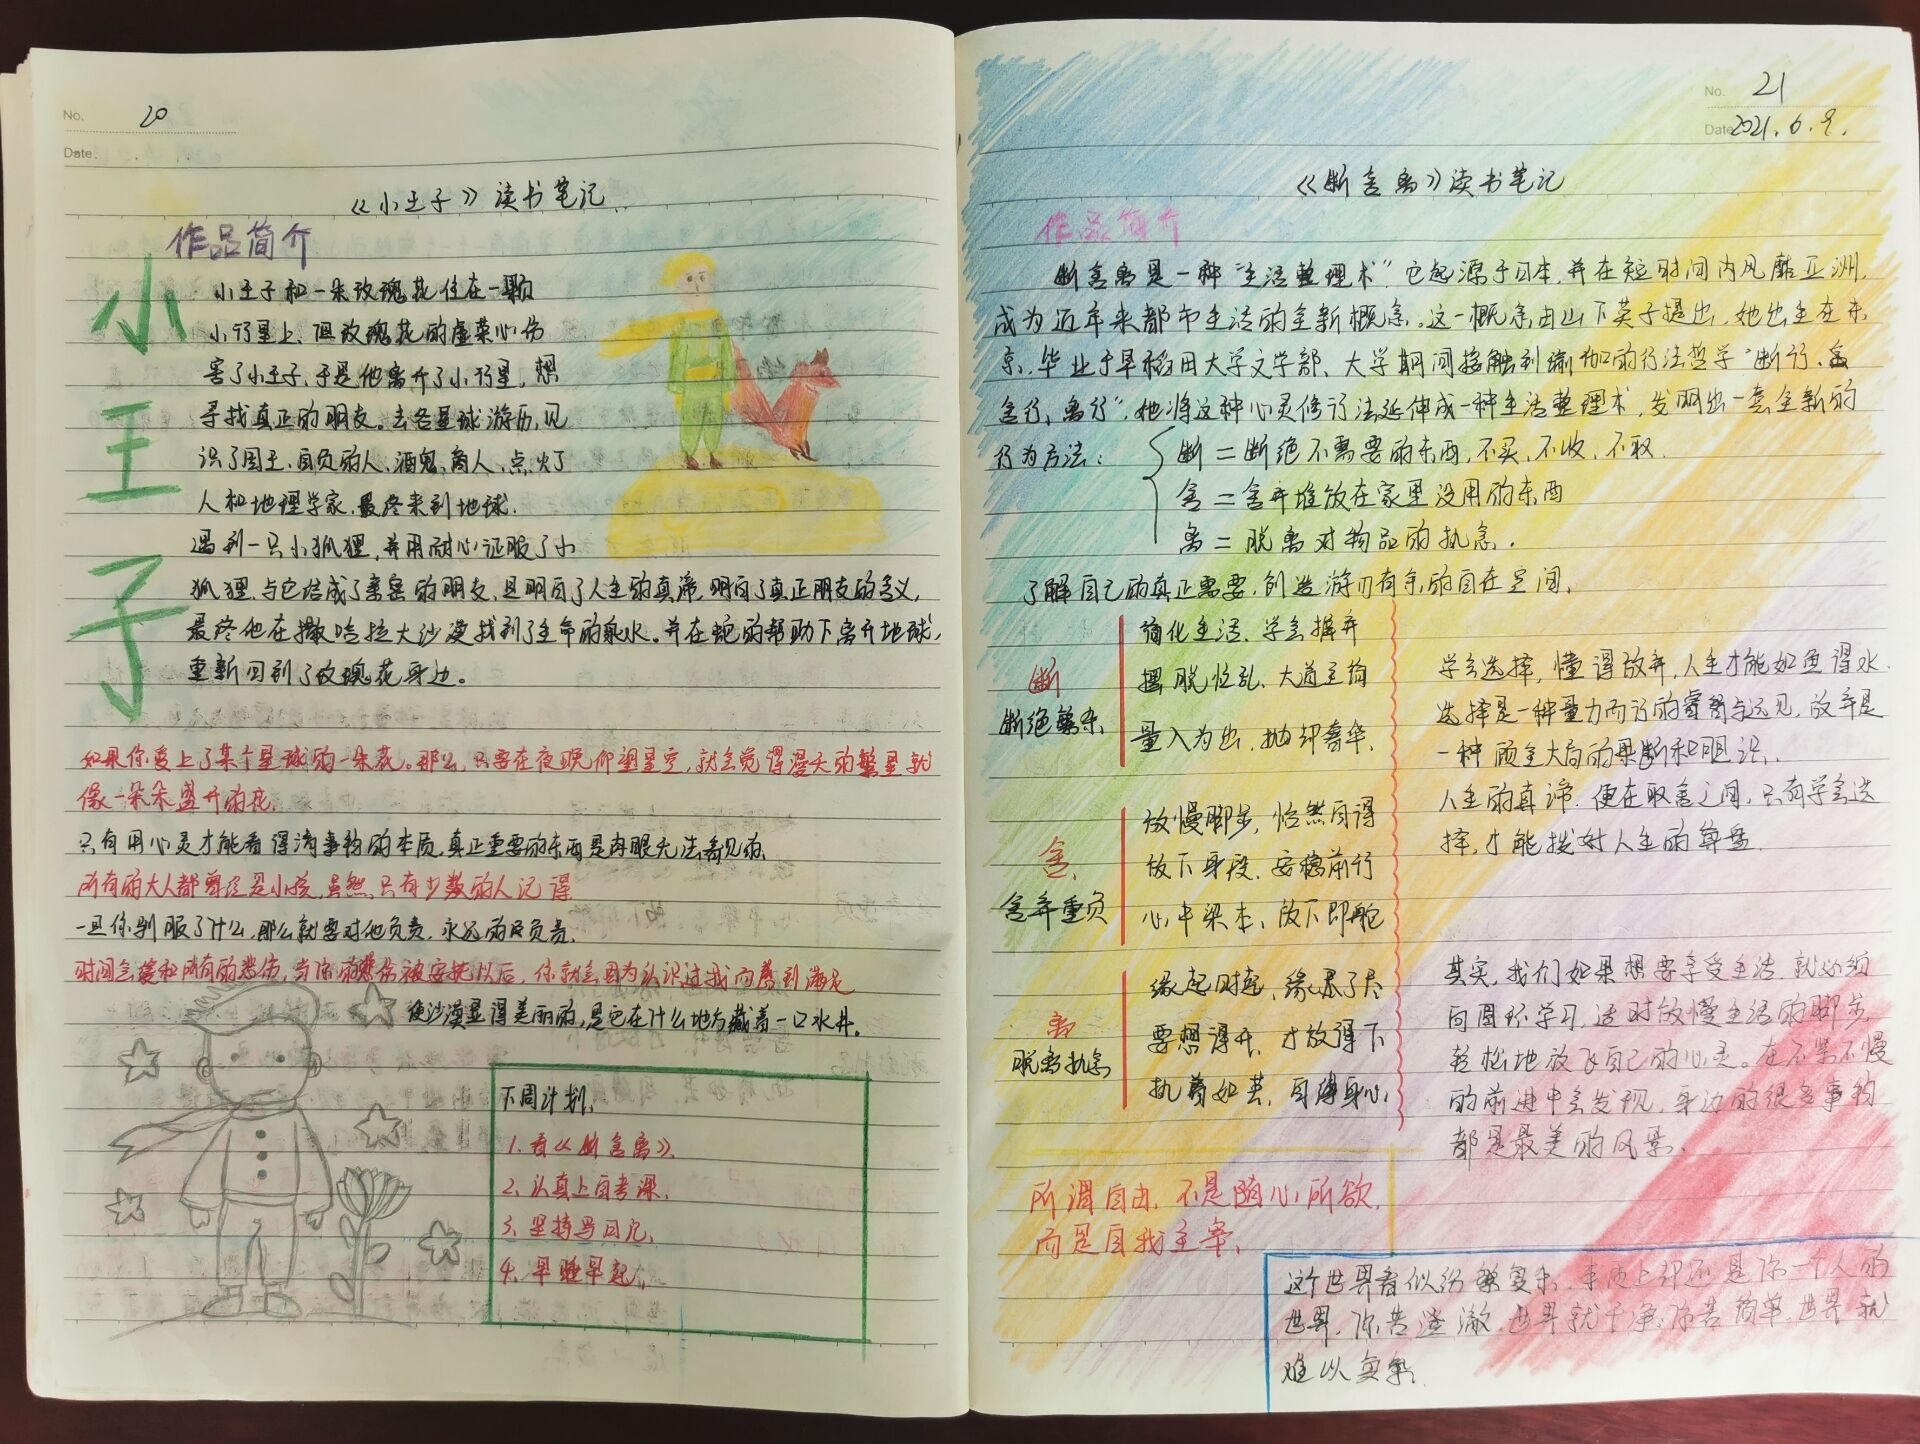 No. 20
Date.
《小王子》读书笔记
作品简介
小王子
小王子和一朵玫瑰花住在一颗
小行星上,但玫瑰花的虚荣心伤
害了小王子,于是他离开了小行星,想
寻找真正的朋友。去各星球游历,见
识了国王,自负的人,酒鬼,商人,点灯
人和地理学家,最终来到地球.
遇到一只小狐狸,并用耐心征服了小
狐狸,与它结成了亲密的朋友,且明白了人生的真谛,明白了真正朋友的含义,
最终他在撒哈拉大沙漠找到了生命的泉水。并在蛇的帮助下离开地球,
重新回到了玫瑰花身边。
如果你爱上了某个星球的一朵花。那么,只要在夜晚仰望星空,就会觉得漫天的繁星就
像一朵朵盛开的花.
只有用心灵才能看得清事物的本质,真正重要的东西是肉眼无法看见的.
所有的大人都曾经是小孩,虽然,只有少数的人记得
一旦你驯服了什么,那么就要对他负责,永远的负责.
时间会缓和所有的悲伤,当你的悲伤被安抚以后,你就会因为认识过我而感到满足
使沙漠显得美丽的,是它在什么地方藏着一口水井。
下周计划:
1.看《断舍离》
2.认真上自考课.
3.坚持写日记.
4.早睡早起.
No. 21
Date 2021.6.9.
《断舍离》读书笔记
作品简介
断舍离是一种"生活整理术",它起源于日本,并在短时间内风靡亚洲,
成为近年来都市生活的全新概念。这一概念由山下英子提出,她出生在东
京,毕业于早稻田大学文学部、大学期间接触到瑜伽的行法哲学"断行、
舍行、离行",她将这种心灵修行法延伸成一种生活整理术,发明出一套全新的
行为方法:
断=断绝不需要的东西,不买、不收、不取.
舍=舍弃堆放在家里没用的东西
离=脱离对物品的执念.
了解自己的真正需要,创造游刃有余的自在空间.
断
断绝繁杂.
简化生活、学会摒弃
摆脱忙乱、大道至简
量入为出,抛却奢华.
舍
舍弃重负
放慢脚步,怡然自得
放下身段,安稳前行
心中梁木、放下即舵
离
脱离执念
缘起时起,缘尽了尽
要想得开,才放得下
执着如苦,自缚身心
学会选择,懂得放弃,人生才能如鱼得水.
选择是一种量力而行的睿智与远见,放弃是
一种顾全大局的果断和胆识.
人生的真谛.便在取舍之间,只有学会选
择,才能拨好人生的算盘.
其实,我们如果想要享受生活.就必须
向圆环学习,适时放慢生活的脚步,
轻松地放飞自己的心灵。在不紧不慢
的前进中会发现,身边的很多事物
都是最美的风景.
所谓自由,不是随心所欲,
而是自我主宰.
这个世界看似纷繁复杂,本质上却还是你一个人的
世界,你若澄澈,世界就干净,你若简单,世界就
难以复杂.